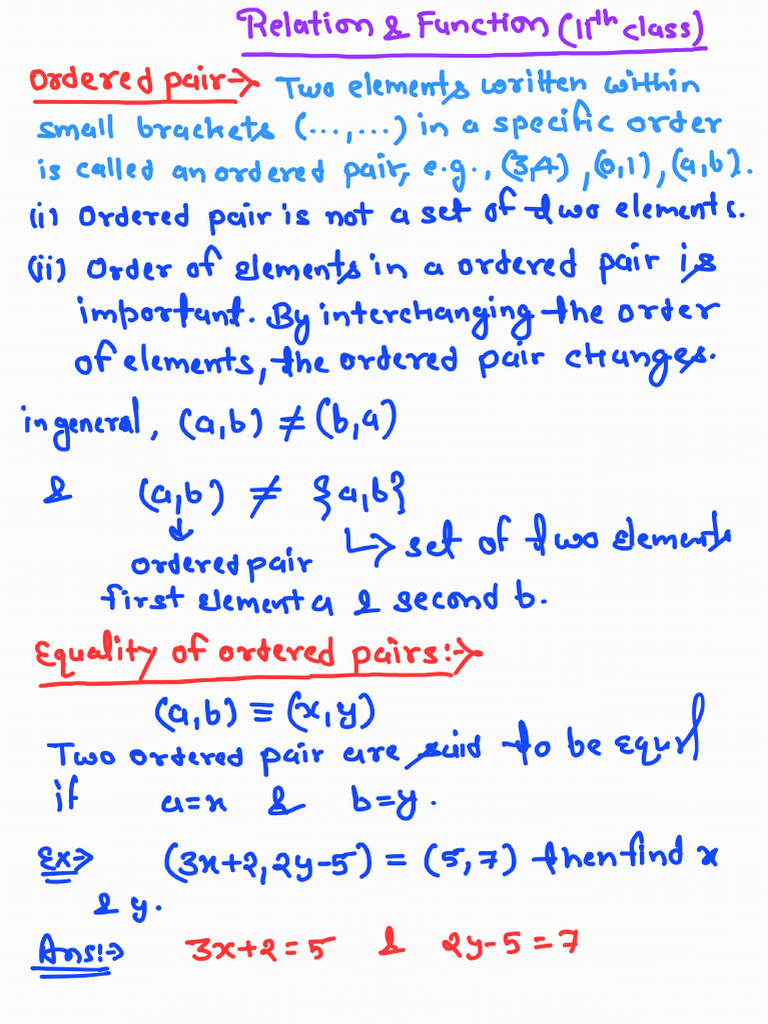 Relation & Function (11th class)
Ordered pair:→ Two elements written within
small brackets (...,...) in a specific order
is called an ordered pair, e.g., (3,4), (0,1), (a,b).
(i) Ordered pair is not a set of two elements.
(ii) Order of elements in a ordered pair is
important. By interchanging the order
of elements, the ordered pair changes.
in general, (a,b) ≠ (b,a)
& (a,b) ≠ {a,b}
↓ ordered pair ↳ set of two elements
first element a & second b.
Equality of ordered pairs:→
(a,b) ≡ (x,y)
Two ordered pair are said to be equal
if a=x & b=y.
Ex→ (3x+2, 2y-5) = (5,7) then find x
& y.
Ans:→ 3x+2=5 & 2y-5=7